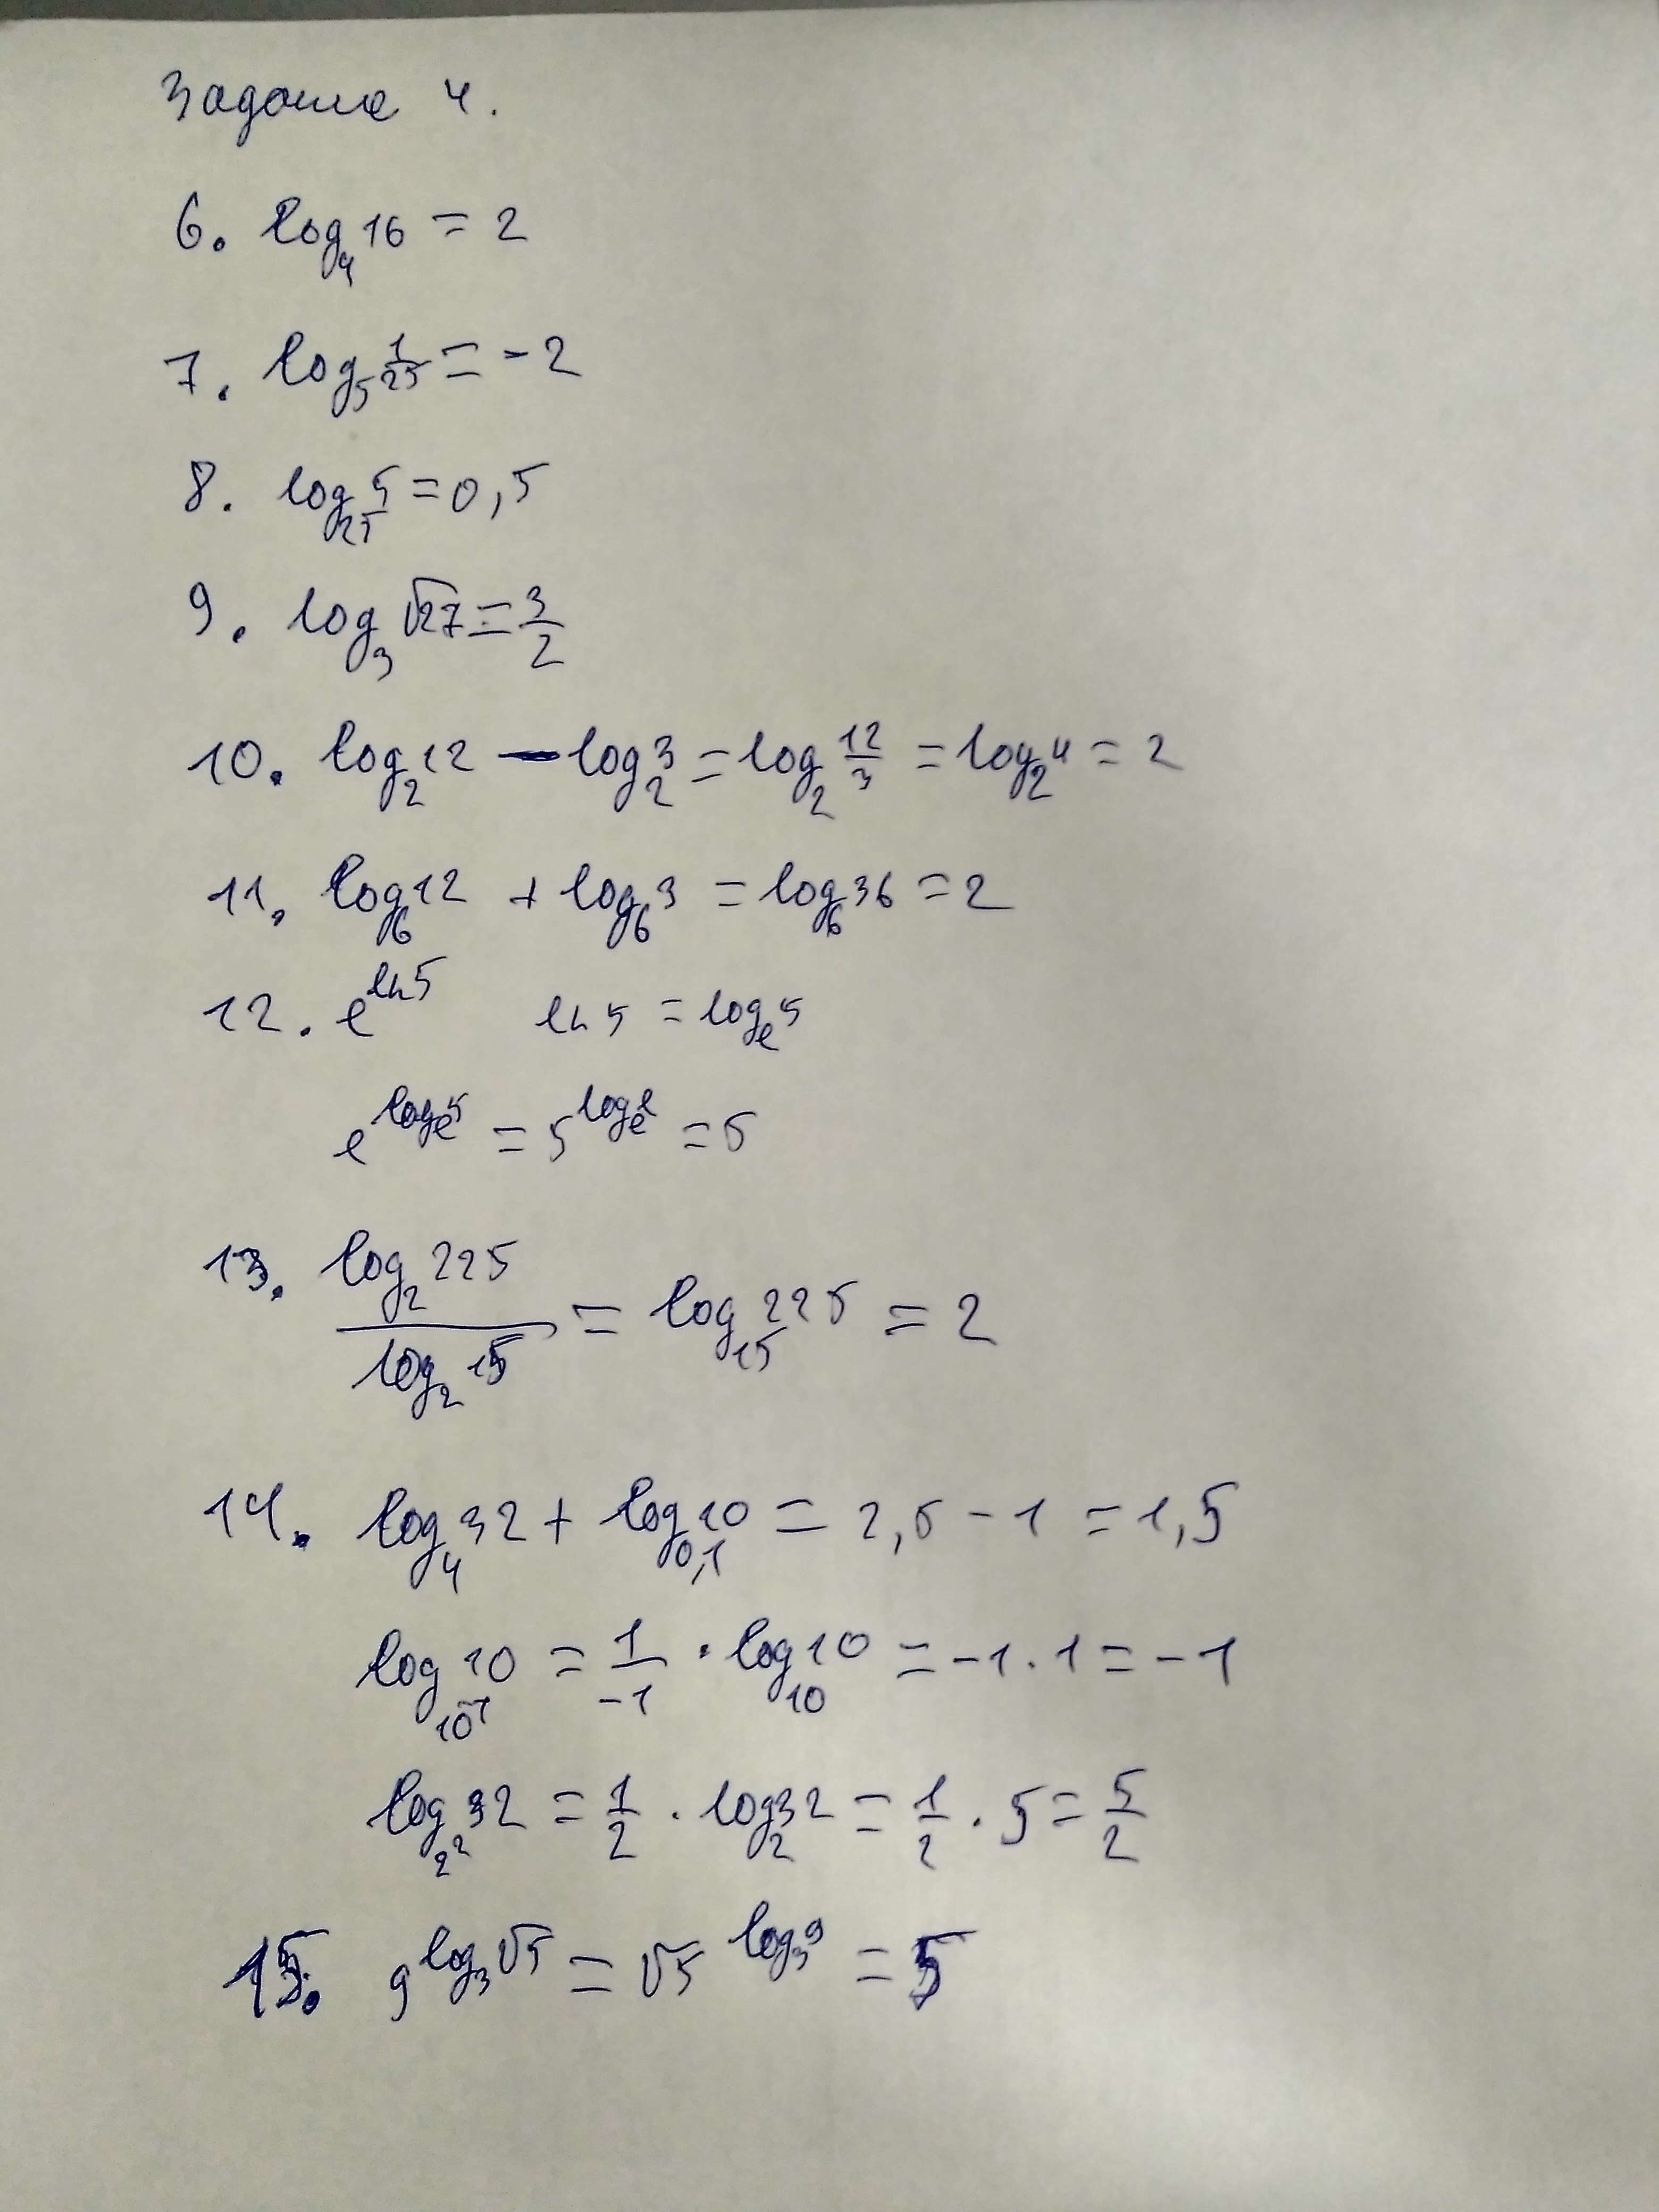 Задание 4.
6. log₄16 = 2
7. log₅ 1/25 = -2
8. log₂₅5 = 0,5
9. log₃√27 = 3/2
10. log₂12 - log₂3 = log₂ 12/3 = log₂4 = 2
11. log₆12 + log₆3 = log₆36 = 2
12. e^ln5 ln5 = logₑ5
e^logₑ5 = 5^logₑe = 5
13. log₂225 / log₂15 = log₁₅225 = 2
14. log₄32 + log₀,₁10 = 2,5 - 1 = 1,5
log₁₀⁻¹10 = 1/-1 · log₁₀10 = -1 · 1 = -1
log₂²32 = 1/2 · log₂32 = 1/2 · 5 = 5/2
15. 9^log₃√5 = √5^log₃9 = 5